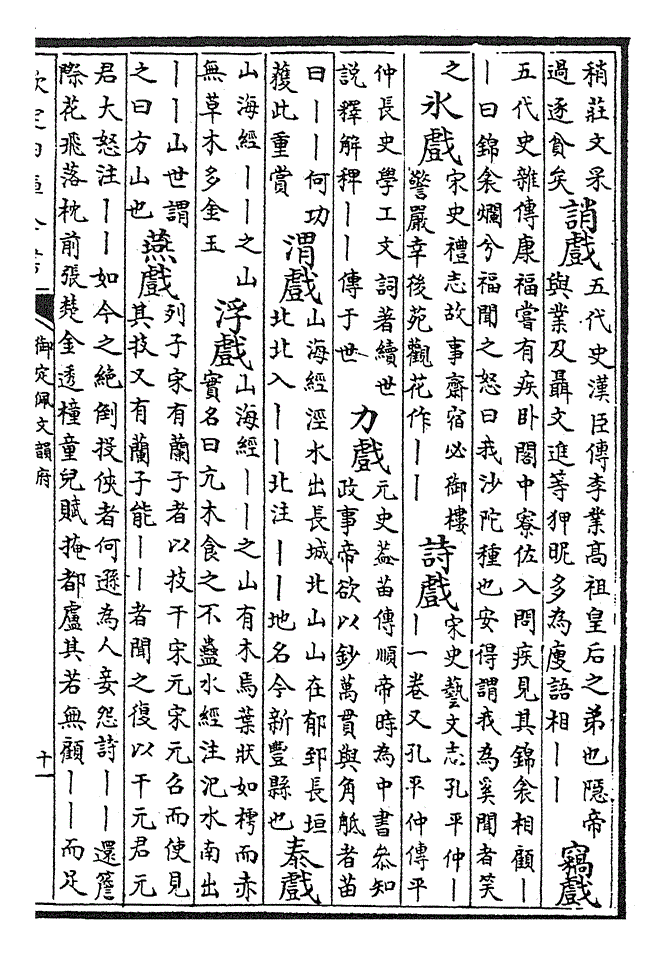 稍莊文采
過逐貧矣
誚戲
五代史漢臣傳李業高祖皇后之弟也隱帝
與業及聶文進等狎昵多為廋語相丨丨
竊戲
五代史雜傳康福嘗有疾卧閣中寮佐入問疾見其錦衾相顧丨
丨曰錦衾爛兮福聞之怒曰我沙陀種也安得謂我為奚聞者笑
之
氷戲
宋史禮志故事齋宿必御樓
警嚴幸後苑觀花作丨丨
詩戲
宋史藝文志孔平仲丨
丨一卷又孔平仲傳平
仲長史學工文詞著續世
説釋解稗丨丨傳于世
力戲
元史葢苗傳順帝時為中書參知
政事帝欲以鈔萬貫與角觝者苗
曰丨丨何功
獲此重賞
渭戲
山海經涇水出長城北山山在郁郅長垣
北北入丨丨北注丨丨地名今新豐縣也
泰戲
山海經丨丨之山
無草木多金玉
浮戲
山海經丨丨之山有木焉葉狀如樗而赤
實名曰亢木食之不蠱水經注汜水南出
丨丨山世謂
之曰方山也
燕戲
列子宋有蘭子者以技干宋元宋元召而使見
其技又有蘭子能丨丨者聞之復以干元君元
君大怒注丨丨如今之絶倒投俠者何遜為人妾怨詩丨丨還簷
際花飛落枕前張楚金透橦童兒賦掩都盧其若無顧丨丨而足
欽定四庫全書
御定佩文韻府
十一